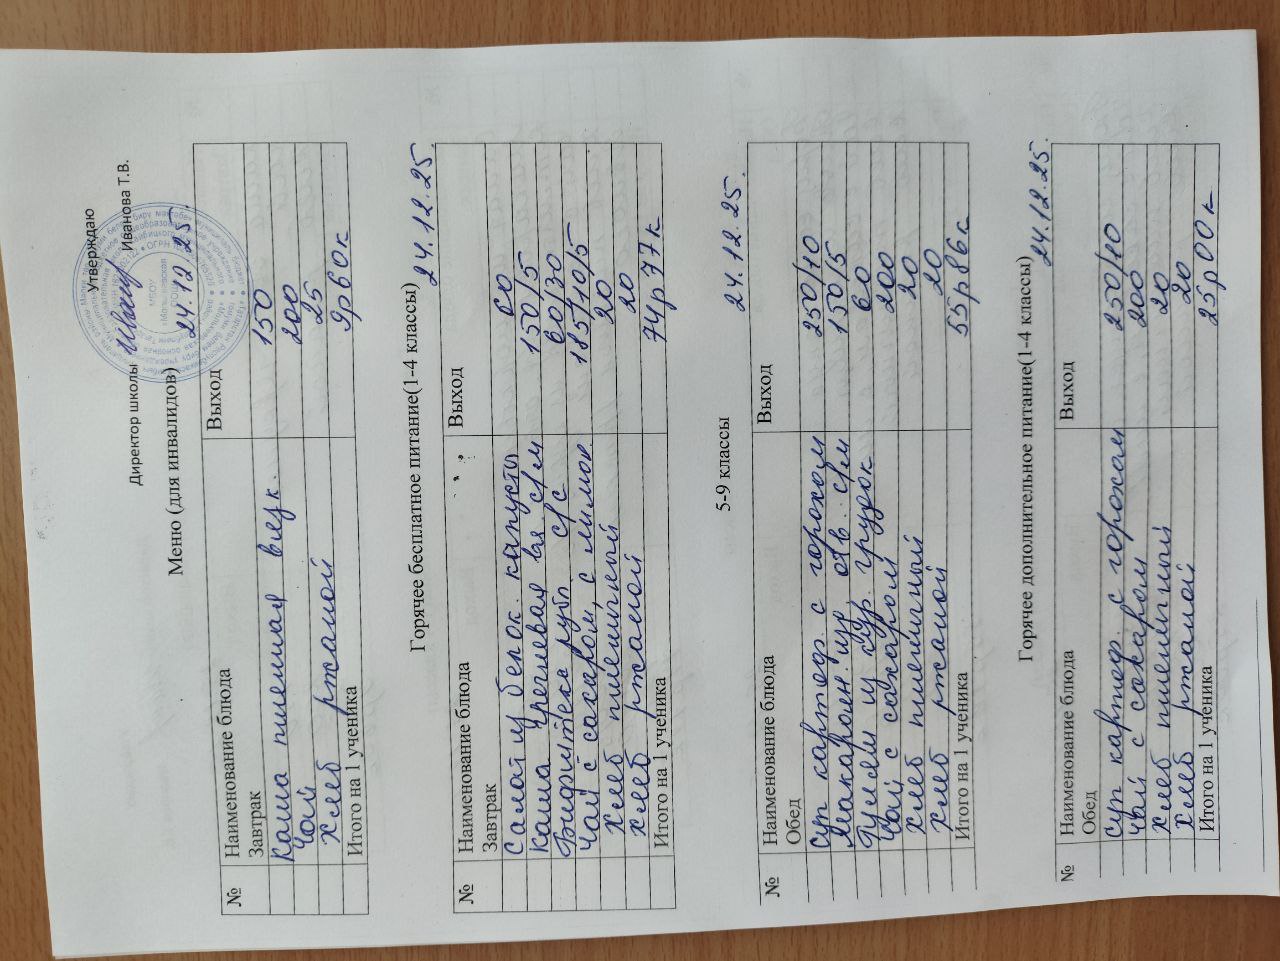 Утверждаю
Директор школы Иванова Т.В.
Меню (для инвалидов) 24.12.25.
№ Наименование блюда Выход
Завтрак
Каша пшенная вязк. 150
Чай 200
Хлеб ржаной 25
Итого на 1 ученика 9р60к
Горячее бесплатное питание(1-4 классы) 24.12.25.
№ Наименование блюда Выход
Завтрак
Салат из белок. капусты 60
Каша гречневая вяз с/м 150/5
Бифштекс рубл с/с 60/30
Чай с сахаром, с лимон. 185/10/5
Хлеб пшеничный 20
Хлеб ржаной 20
Итого на 1 ученика 74р77к
5-9 классы 24.12.25.
№ Наименование блюда Выход
Обед
Суп картоф. с горохом 250/10
Макарон. изд отв. с/м 150/5
Гуляш из кур. грудок 60
Чай с сахаром 200
Хлеб пшеничный 20
Хлеб ржаной 20
Итого на 1 ученика 55р86к
Горячее дополнительное питание(1-4 классы) 24.12.25.
№ Наименование блюда Выход
Обед
Суп картоф. с горохом 250/10
Чай с сахаром 200
Хлеб пшеничный 20
Хлеб ржаной 20
Итого на 1 ученика 25р00к